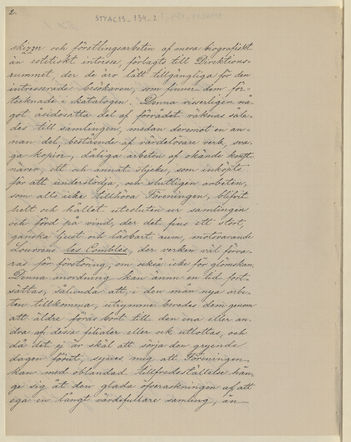 2.
skizzer och förstlingsarbeten af mera biografiskt
än estetiskt intresse, förlagts till Direktions-
rummet, der de äro lätt tillgängliga för den
intresserade besökaren, som finner dem för-
tecknade i katalogen. Denna visserligen nå-
got åsidosatta del af förrådet räknas såle-
des till samlingen, medan deremot en an-
nan del, bestående af värdelösare verk, svaga
kopior, dåliga arbeten af okände konst-
närer, ett och annat objekt, som inköpts
för att understödja, och slutligen arbeten,
som alls icke tillhöra Föreningen, blifvit
helt och hållet uteslutna ur samlingen
och förda på vind, der det fins ett stort,
ljust och bart rum, motsvarande
Louvrens Les Combles, der verken väl förva-
ras för förstöring, men också icke för glömskan.
Denna inordning kan ännu en tid fort-
sättas, sålunda att, i den mån nya arbe-
ten tillkomma, utrymme beredes dem genom
att äldre föras bort till den ena eller an-
dra af dessa filialer eller ock utlottas, och
då det ej är skäl att sörja den gryende
dagen förut, synes mig att Föreningen
kan med oblandad tillfredsställelse hän-
ge sig åt den glada öfverraskningen af att
ega en långt värdefullare samling, än